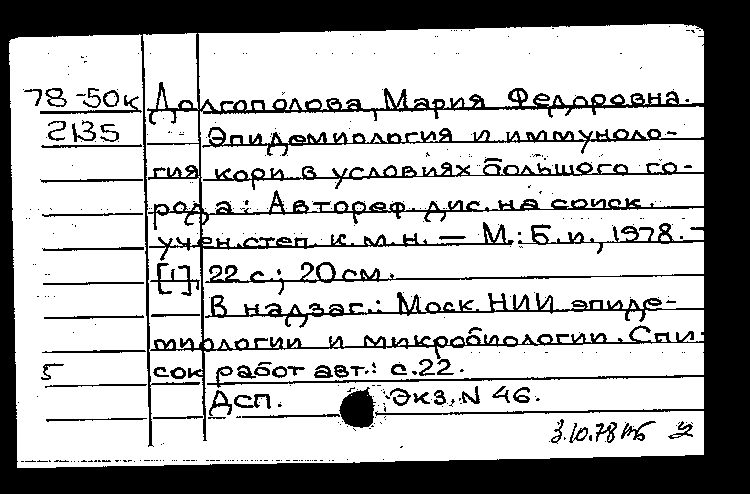 78-50к Долгополова, Мария Федоровна.
2135 Эпидемиология и иммуноло-
гия кори в условиях большого го-
рода: Автореф. дис. на соиск.
учен. степ. к.м.н. — М.: Б.и., 1978. –
[1], 22 с.; 20 см.
В надзаг.: Моск. НИИ эпиде-
миологии и микробиологии. Спи-
5 сок работ авт.: с. 22.
ДСП. Экз. N 46.
3.10.78